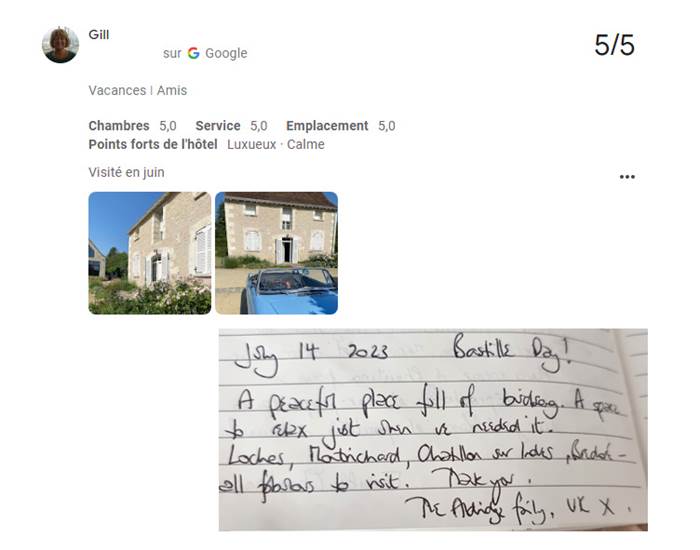 Gill
5/5
sur Google
Vacances | Amis
Chambres 5,0 Service 5,0 Emplacement 5,0
Points forts de l'hôtel Luxueux · Calme
Visité en juin
July 14 2023 Bastille Day!
A peaceful place full of birdsong. A space
to relax just when we needed it.
Loches, Montrichard, Chatillon sur Indes,
all fabulous to visit. Thank you.
The Aldridge family, UK X.